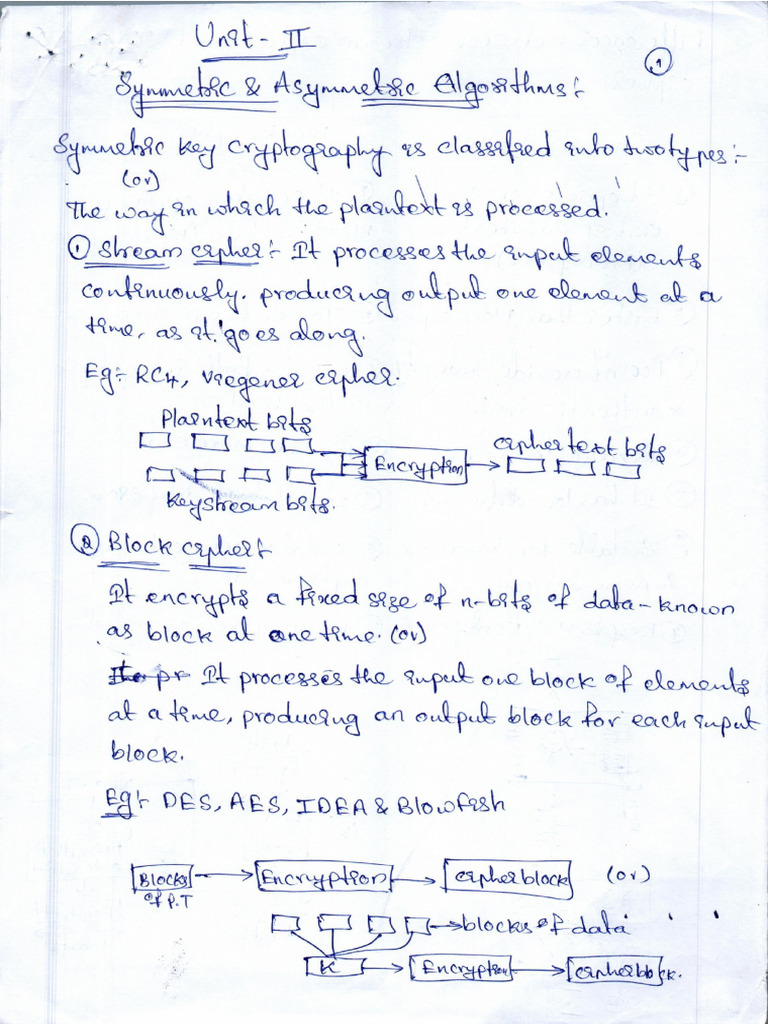 Unit - II
1
Symmetric & Asymmetric Algorithms:-
Symmetric key cryptography is classified into two types:-
(or)
The way in which the plaintext is processed.
① Stream cipher:- It processes the input elements
continuously. producing output one element at a
time, as it goes along.
Eg:- RC4, viegener cipher.
Plaintext bits
ciphertext bits
Encryption
Keystream bits.
② Block cipher:-
It encrypts a fixed size of n-bits of data - known
as block at one time. (or)
It processes the input one block of elements
at a time, producing an output block for each input
block.
Eg:- DES, AES, IDEA & Blowfish
Blocks of P.T
Encryption
cipherblock
(or)
blocks of data
K
Encryption
cipherblock.